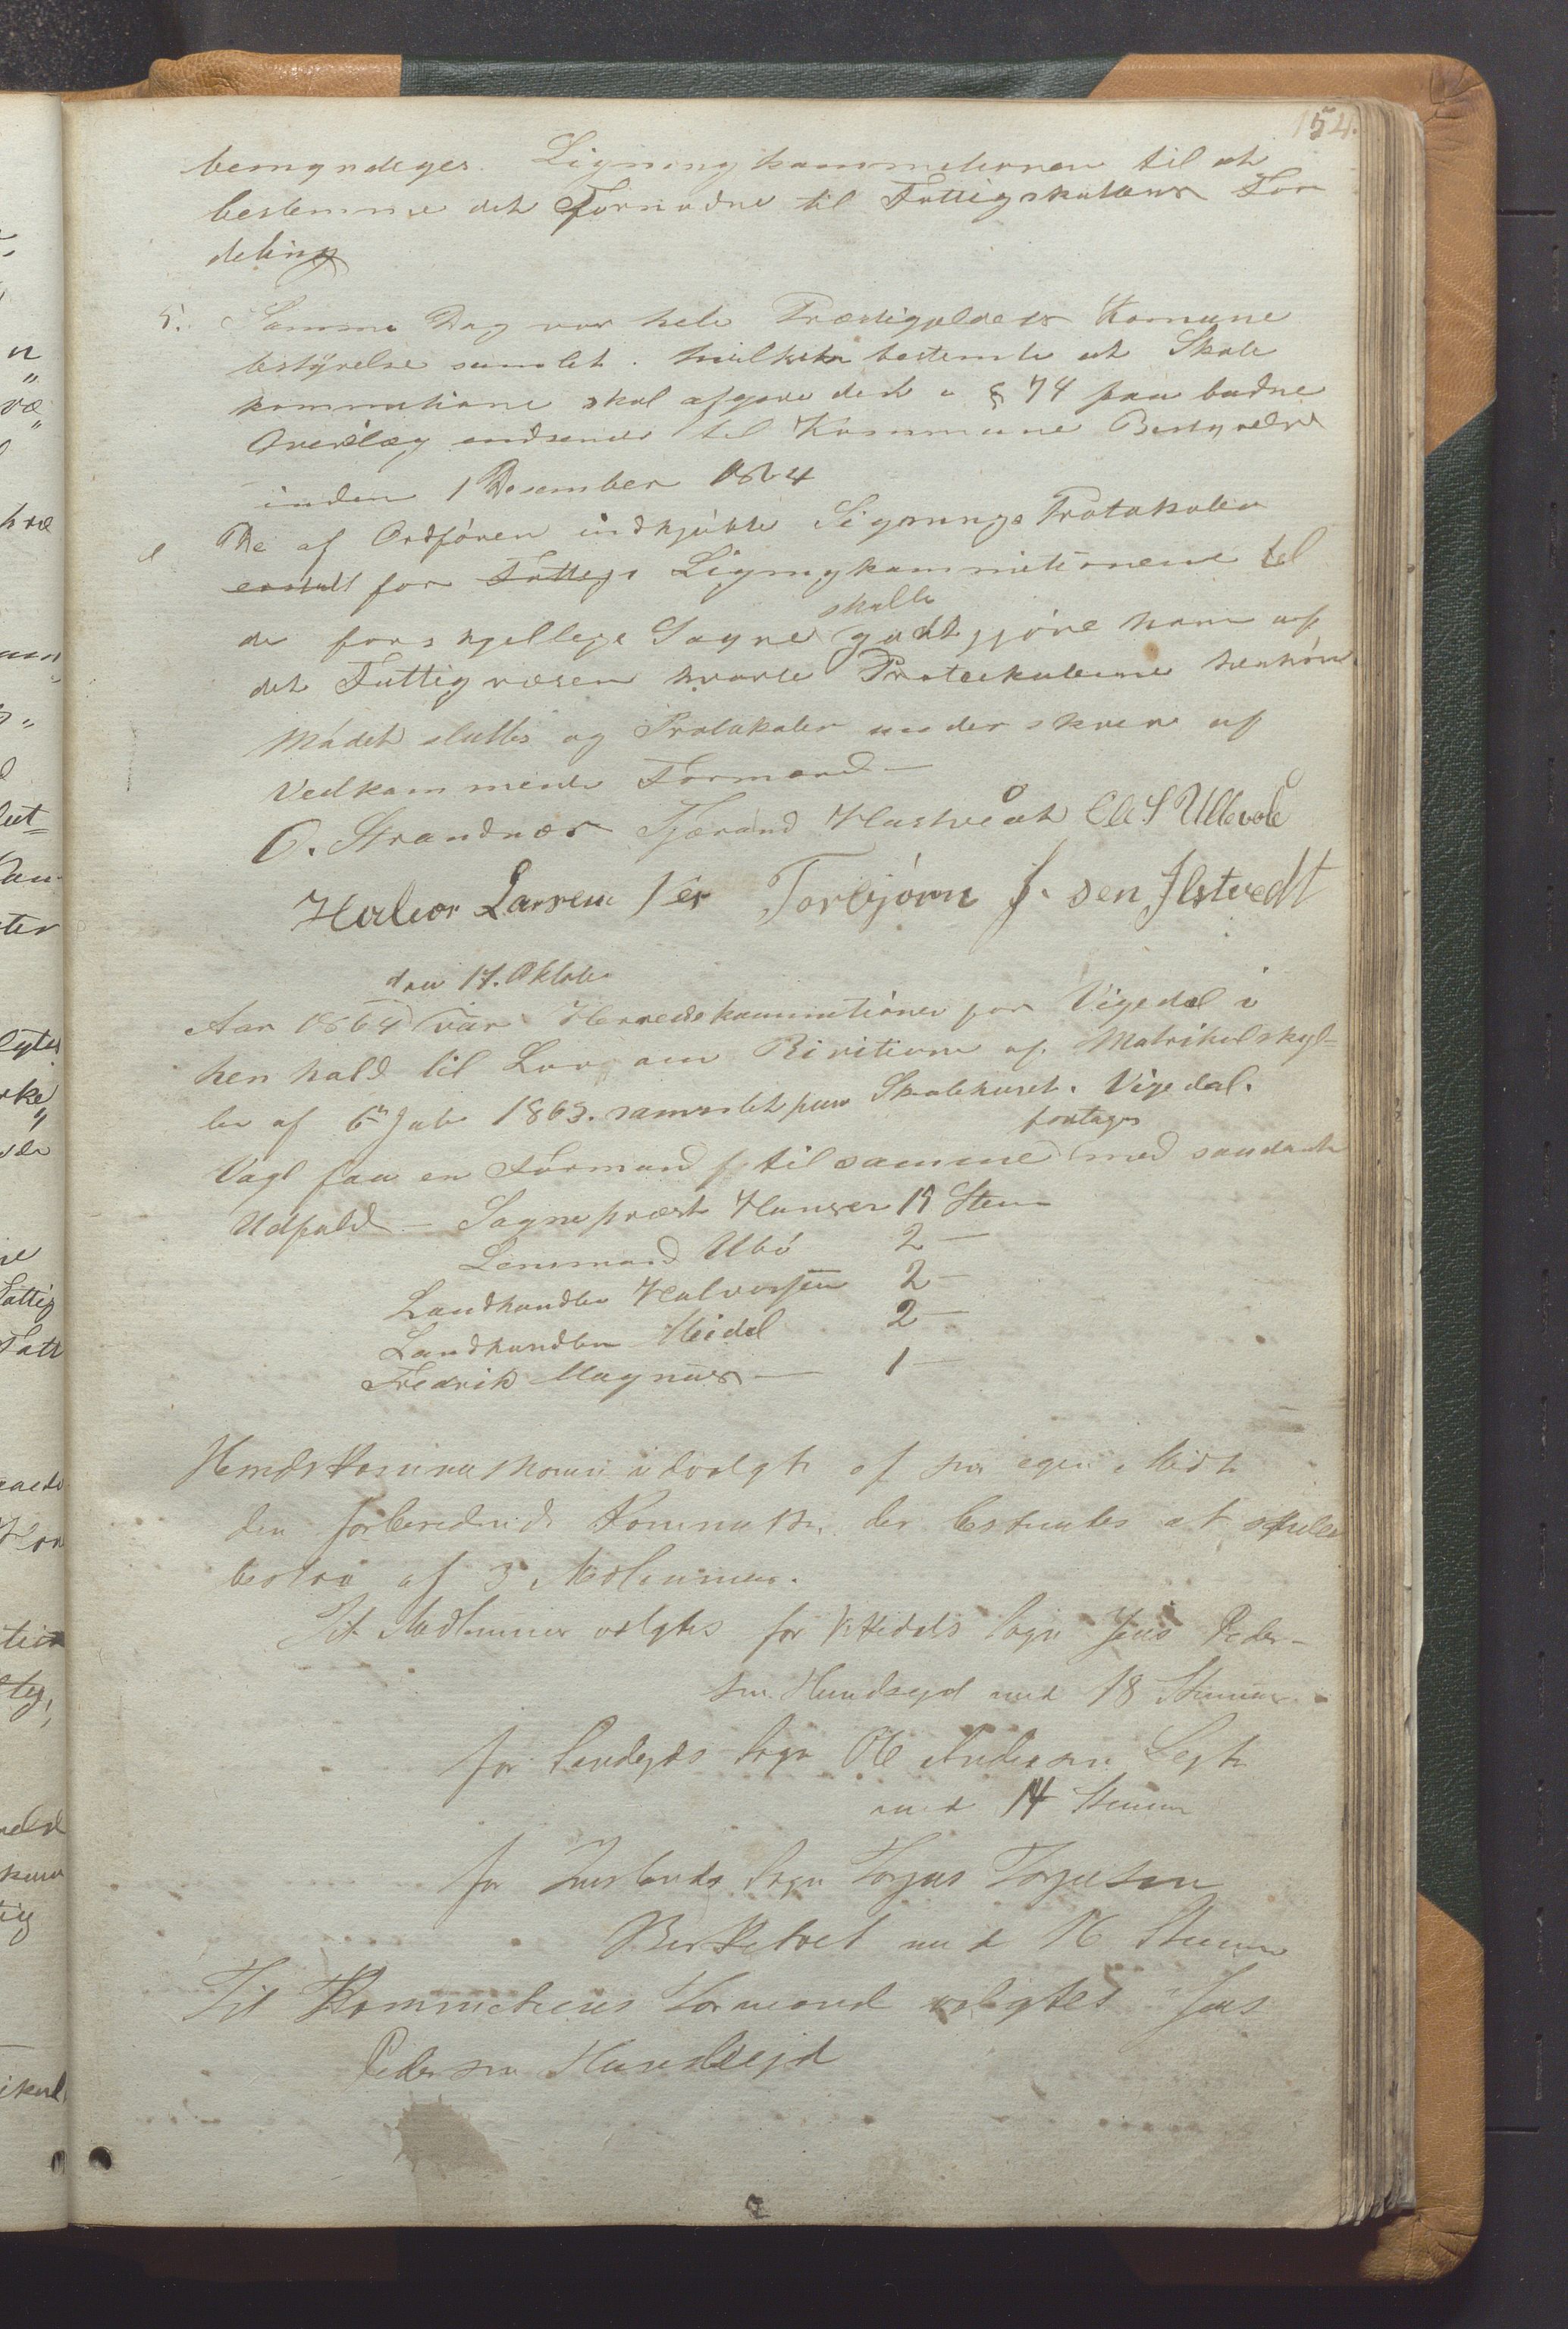 154.
bemyndiges. Ligningkommitionen til at
bestemme det Fornødne til Fattigskatens For
deling
5. Samme Dag var hele Præstigjeldets Komune
bestÿrelse samlet. hvilken bestemte at Skole
kommitione skal afgjøre det i § 74 paabudne
Overslag indsendes til Kommune Bestyrelse
inden 1 Desember 1864
De af Ordføren indkjøbte Lignings Protokoler
for Ligningkommitionene til
skulle
de forskjellige Sogne godtgjøre ham af
det Fattigvæsen hvorte Protokolerne henhøre
Mødet sluttes og Protokolen underskreve af
Vedkommende Formænd —
O. Strandnæs Tjærand Hustveät Ole S Ullevole
Halvor Larsen Øer Torbjørn J. sen Ilstvedt
den 17. Oktober
Aar 1864 var Herredskommitionen for Vigedal i
henhold til Lov om Rivition af Matrikulskyl-
len af 6te Juli 1863. samlet paa Skolehuset. Vigedal.
foretages
Valg paa en Formand f til samme med saadant
Udfald — Sogneprest Hansen 19 Stem
Lensmand Ubø 2 —
Landhandler Halvorsen 2 —
Landhandler Meidel 2 —
Fredrik Magnus — 1 —
Herredskommisionen udvalgte af sin egen Midte
den forberedende Kommission, der bestemtes at skulle
bestaa af 3 Medlemmer.
Til Medlemmer valgtes for Vikedals Sogn Jens Peder-
sen Hundseyd med 18 Stemmer
for Sandeids Sogn Ole Andersen Leghe
med 14 Stemmer
for Imslands Sogn Torjus Torjusen
med 16 Stemmer
Til Kommitionens Formand valgtes Jens
Pedersen Hundseyd